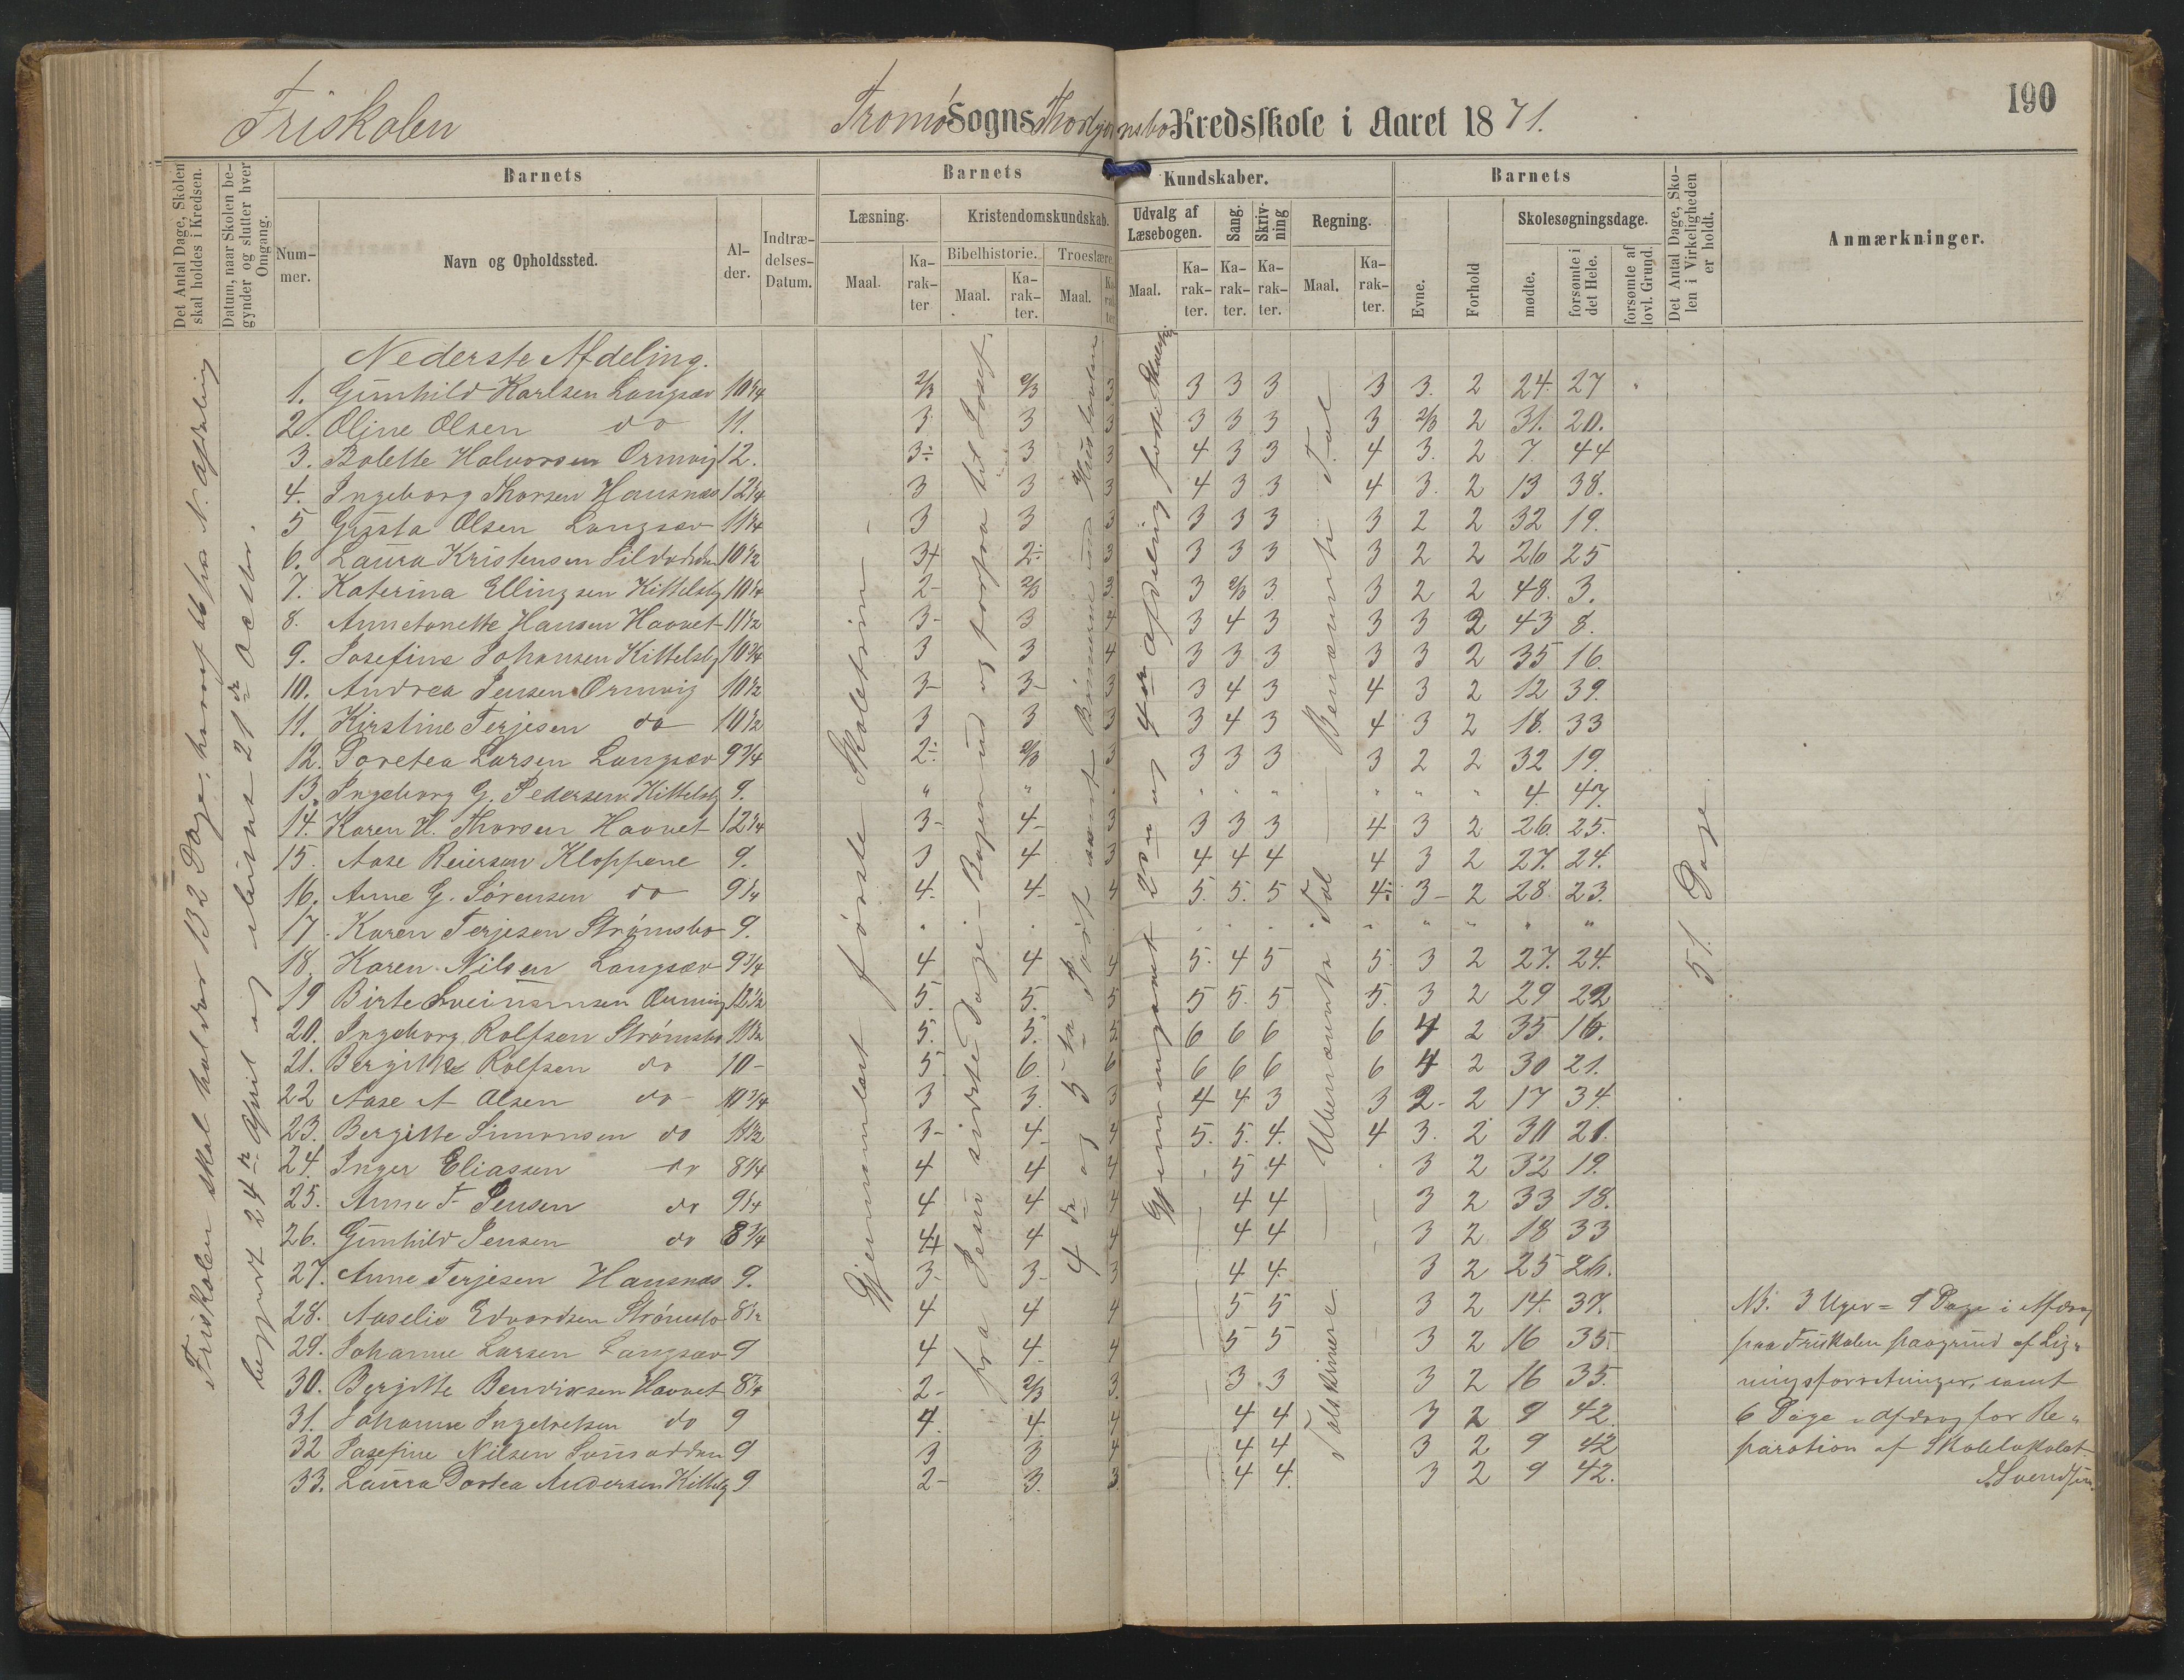 190
Friskolen Tromø Sogns Thorbjørnsbo Kredsskole i Aaret 1871.
Det Antal Dage, Skolen skal holdes i Kredsen.
Datum, naar Skolen be-gynder og slutter hver Omgang.
Barnets Barnets Kundskaber. Barnets
Det Antal Dage, Sko-len i Virkeligheden er holdt.
Anmærkninger.
Num-mer. Navn og Opholdssted. Al-der. Indtræ-delses-Datum.
Læsning. Kristendomskundskab. Udvalg af Læsebogen. Sang. Skriv-ning Regning. Evne. Forhold Skolesøgningsdage.
Bibelhistorie. Troeslære.
Maal. Ka-rak-ter Maal. Ka-rak-ter. Maal. Ka-rak-ter Maal. Ka-rak-ter. Ka-rak-ter. Ka-rak-ter. Maal. Ka-rak-ter. mødte. forsømte i det Hele. forsømte af lovl. Grund.
Friskolen skal holdes 132 Dage, heraf 66 paa N. Afdeling
begyndt 24de April og sluttet 21de Octbr.
Nederste Afdeling.
1. Gunhild Karlsen Langsæv 10 1/4 2/3 2/3 3 3 3 3 3 3. 2 24. 27
2. Oline Olsen do 11. 3 3 3 3 3 3 3 2/3 2 31. 20.
3. Bolette Halvorsen Ormvig 12. 3÷ 3 3 4 3 3 4 3. 2 7 44
4. Ingeborg Thorsen Hausnæs 12 1/4 3 3 3 4 3 3 4 3. 2 13 38.
5 Gusta Olsen Langsæv 11 1/4 3 3 3 3 3 3 3 2 2 32 19.
6. Laura Kristensen 10 1/2 3+ 2÷ 3 3 3 3 3 2 2 26 25
7. Katerina Ellingsen Kittelsby 10 1/4 2- 2/3 3 3 2/3 3 3 2 2 48. 3.
8. Annetonette Hansen Hovet 11 1/2 3- 3 4 3 4 3 3 3 2 43 8.
9. Josefine Johansen Kittelsby 10 3/4 3 3 4 3 3 3 3 3 2 35 16.
10. Andrea Jensen Ormvig 10 1/2 3- 3- 3 3 4 3 4 3 2 12 39.
11. Kirstine Terjesen do 10 1/2 3 3 3 3 4 3 4 3 2 18. 33
12. Doretea Larsen Langsæv 9 3/4 2÷ 2/3 3 3 3 3 3 2 2 32 19.
13. Ingeborg G. Pedersen Kittelsby 9. " " " " " " " " " 4. 47.
14. Karen H. Thorsen Hovet 12 1/4 3- 4- 3 3 3 3 4 3 2 26. 25.
15. Aase Reiersen Kloppene 9. 3 4 3 4 4 4 4 3 2 27. 24.
16. Anne G. Sørensen do 9 1/4 4- 4- 4 5. 5. 5 4÷ 3- 2 28 23.
17. Karen Terjesen Strømsbo 9. " " " " " " " " " " "
18. Karen Nilsen Langsæv 9 3/4 4 4 4 5. 4 5 5 3 2 27. 24.
19 Birte Sveinumsen Ormvig 12 1/2 5. 5. 5 5 5. 5 5. 3 2 29 22
20. Ingeborg Rolfsen Strømsbo 11 1/2 5. 5. 5 6 6 6 6 4 2 35 16.
21. Bergitte Rolfsen do 10- 5 6. 6 6 6 6 6 4 2 30 21.
22 Aase A Olsen do 10 3/4 3 3. 3 4 4 3 3 2- 2 17 34.
23. Bergitte Simonsen do 11 1/2 3- 4- 4 5. 5. 4. 4 3. 2 30 21.
24. Inger Eliassen do 8 1/4 4 4 4 5 4 3 2 32 19.
25. Anne T Jensen do 9 1/4 4 4 4 4 4 3 2 33 18.
26. Gunhild Jensen do 8 3/4 4+ 4 4 4 4 3 2 18 33
27. Anne Terjesen Hausnæs 9. 3- 3- 3 4 4 3 2 25 26.
28. Aaselie Edvardsen Strømsbo 8 1/2 4 4 4 5 5 3 2 14. 37.
29. Johanne Larsen Langsæv 9 4 4- 4 5 5 3 2 16 35.
30. Bergitte Bendixsen Hovet 8 3/4 2- 2/3 3. 3 3 3 2 16 35.
31. Johanne Ingebretsen do 9 4. 4. 4 4 4 3 2 9 42.
32 Josefine Nilsen 9 3 3 4 4 4 3 2 9 42
33. Laura Dortea Andersen Kittelsby 9 2- 3. 3. 4 4. 3 2 9 42.
Gjennemlæst første Skoletrin -
fra Jesu sidste Dage - Bogen ud og forfra til Josef.
4de og 5te Part samt
Gjennemgaaet 2den og 4de Afdeling
- Ubenævnte Tal - Benævnte Tal
51 Dage
NB. 3 Uger = 9 Dage i Afdrag
paa Friskolen paagrund af Lig"
ningsforretninger, samt
6 Dage i Afdrag for Re"
paration af Skolelokalet
Svendsen.